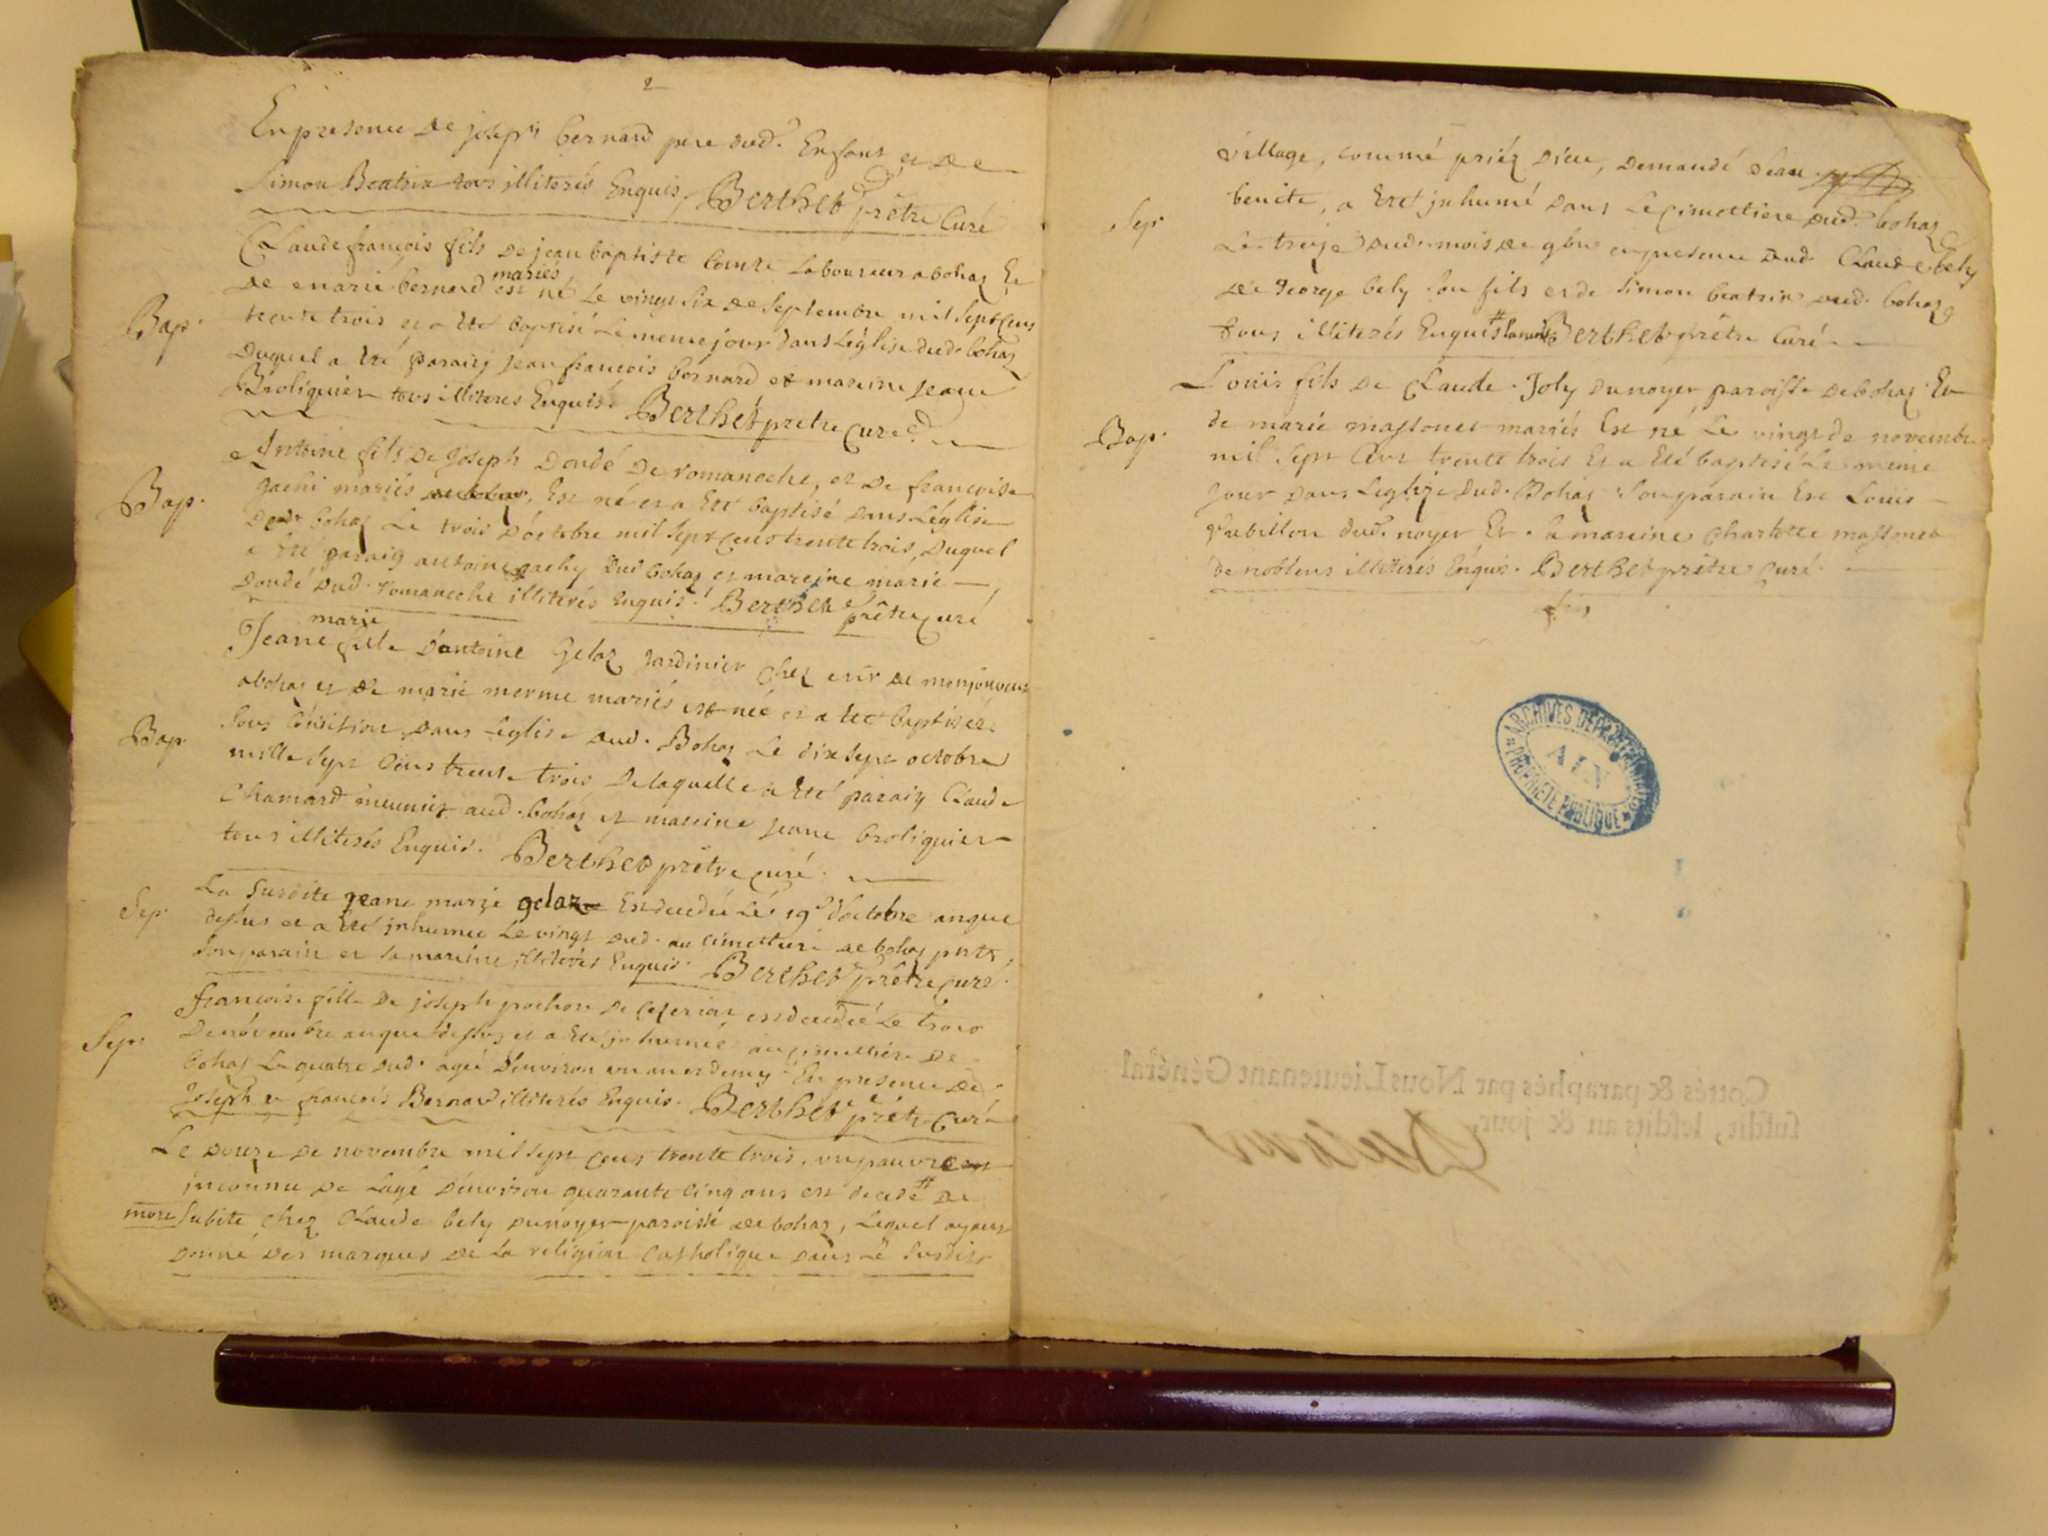 2
En presence de joseph bernard pere dud. Enfant et de
Simon Beatrix tous illiterés Enquis, Berthet prêtre Curé
Claude françois fils de jean baptiste Comte laboureur a bohaz Et
mariés
de marie bernard est né Le vingt six de Septembre mil Sept Cens
Bap.
trente trois et a Eté baptisé Le meme jour dans L'église dud. bohaz
Duquel a Eté parain jean françois bernard et mareine jeane
Broliquier tous illiteres Enquis. Berthet pretre Curé
Antoine fils de Joseph Doudé de romaneche, et de françoise
Bap.
gachi mariés, Est né et a Eté baptisé dans L'église
Dud. bohaz Le trois d'octobre mil Sept Cens trente trois, Duquel
a Eté parain antoine gachy dud bohaz et mareine marie
Doudé dud. romaneche illiterés Enquis. Berthet prêtre Curé
marie
Jeane fille d'antoine Gelaz Jardinier Chez de monjouvent
a bohaz et de marie merme mariés est née et a Eté baptisée
Sous Condition, dans L'eglise dud. Bohaz Le dix Sept octobre
Bap.
mille Sept Cens trente trois, De laquelle a Eté parain Claude
Chamard meunier aud. bohaz et mareine jeane broliquier
tous illiterés Enquis. Berthet prêtre curé.
La Susdite jeane marie gelaz Est decedée Le 19e d'octobre an que
Sep.
dessus et a Eté inhumée Le vingt dud. au cimettiere de bohaz pnts
Son parain et Sa mareine illiterés Enquis. Berthet prêtre curé.
françoise fille de joseph pochon de Ceseriat est decedée Le trois
Sepr
De novembre an que dessus et a Eté inhumée au cimettiere de
bohaz Le quatre dud. agée d'environ un an et demy En presence de
Joseph et françois Bernard illiterés Enquis. Berthet prêtre Curé
Le douze de novembre mil Sept Cens trente trois, un pauvre
inconnu de L'age d'environ quarante cinq ans est decedé # de
mort Subite chez Claude bely du noyer paroisse de bohaz, Lequel ayant
donné des marques de La religion Catholique dans Le Susdit
village, comme priér Dieu, demandé L'eau
benite, a Eté inhumé dans Le cimettiere dud. bohaz
Sepr
Le treize dud. mois de 9bre en presence dud. Claude bely
de george bely Son fils et de Simon beatrix dud. bohaz
tous illiterés Enquis # Berthet prêtre Curé
Louis fils de Claude Joly du noyer paroisse de bohaz Et
Bap.
de marie massonet mariés Est né Le vingt de novembre
mil Sept Cens trente trois Et a Eté baptisé Le meme
jour dans L'eglize dud. Bohaz. Son parain Est Louis
dud. noyer Et Sa mareine Charlotte massonet
de noblens illiterés Enquis. Berthet prêtre Curé
fin
ARCHIVES DEPARTEMENTALES
AIN
PROPRIETE PUBLIQUE
Cottés & paraphés par Nous Lieutenant Général
susdit, lesdits an & jour,